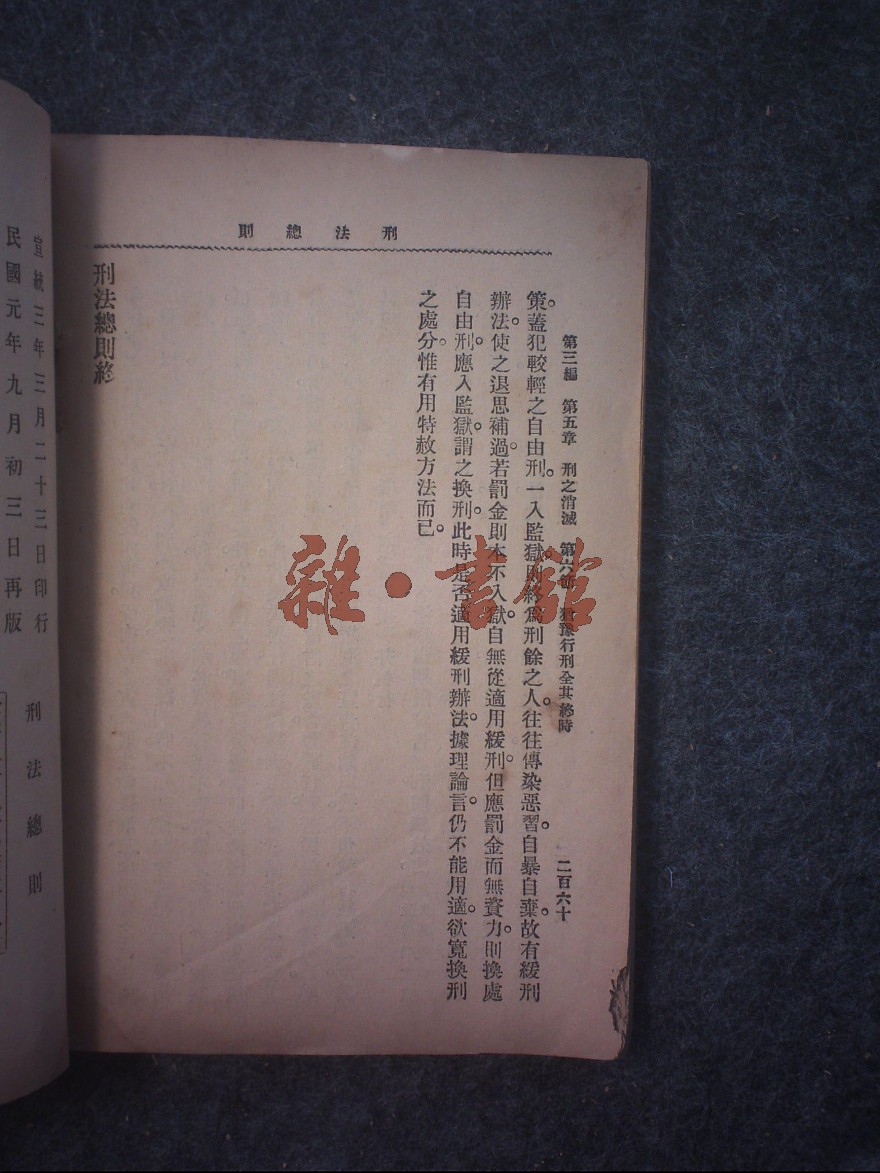 刑法總則
第三編　第五章　刑之消滅　第六節　猶豫行刑全其終時　二百六十
策。蓋犯較輕之自由刑。一入監獄。則終爲刑餘之人。往往傳染惡習。自暴自棄。故有緩刑
辦法。使之退思補過。若罰金則本不入獄。自無從適用緩刑。但應罰金而無資力。則換處
自由刑。應入監獄。謂之換刑。此時是否適用緩刑辦法。據理論言。仍不能用適。欲寬換刑
之處分。惟有用特赦方法而已。
刑法總則終
宣統三年三月二十三日印行　刑法總則
民國元年九月初三日再版
雜·書館